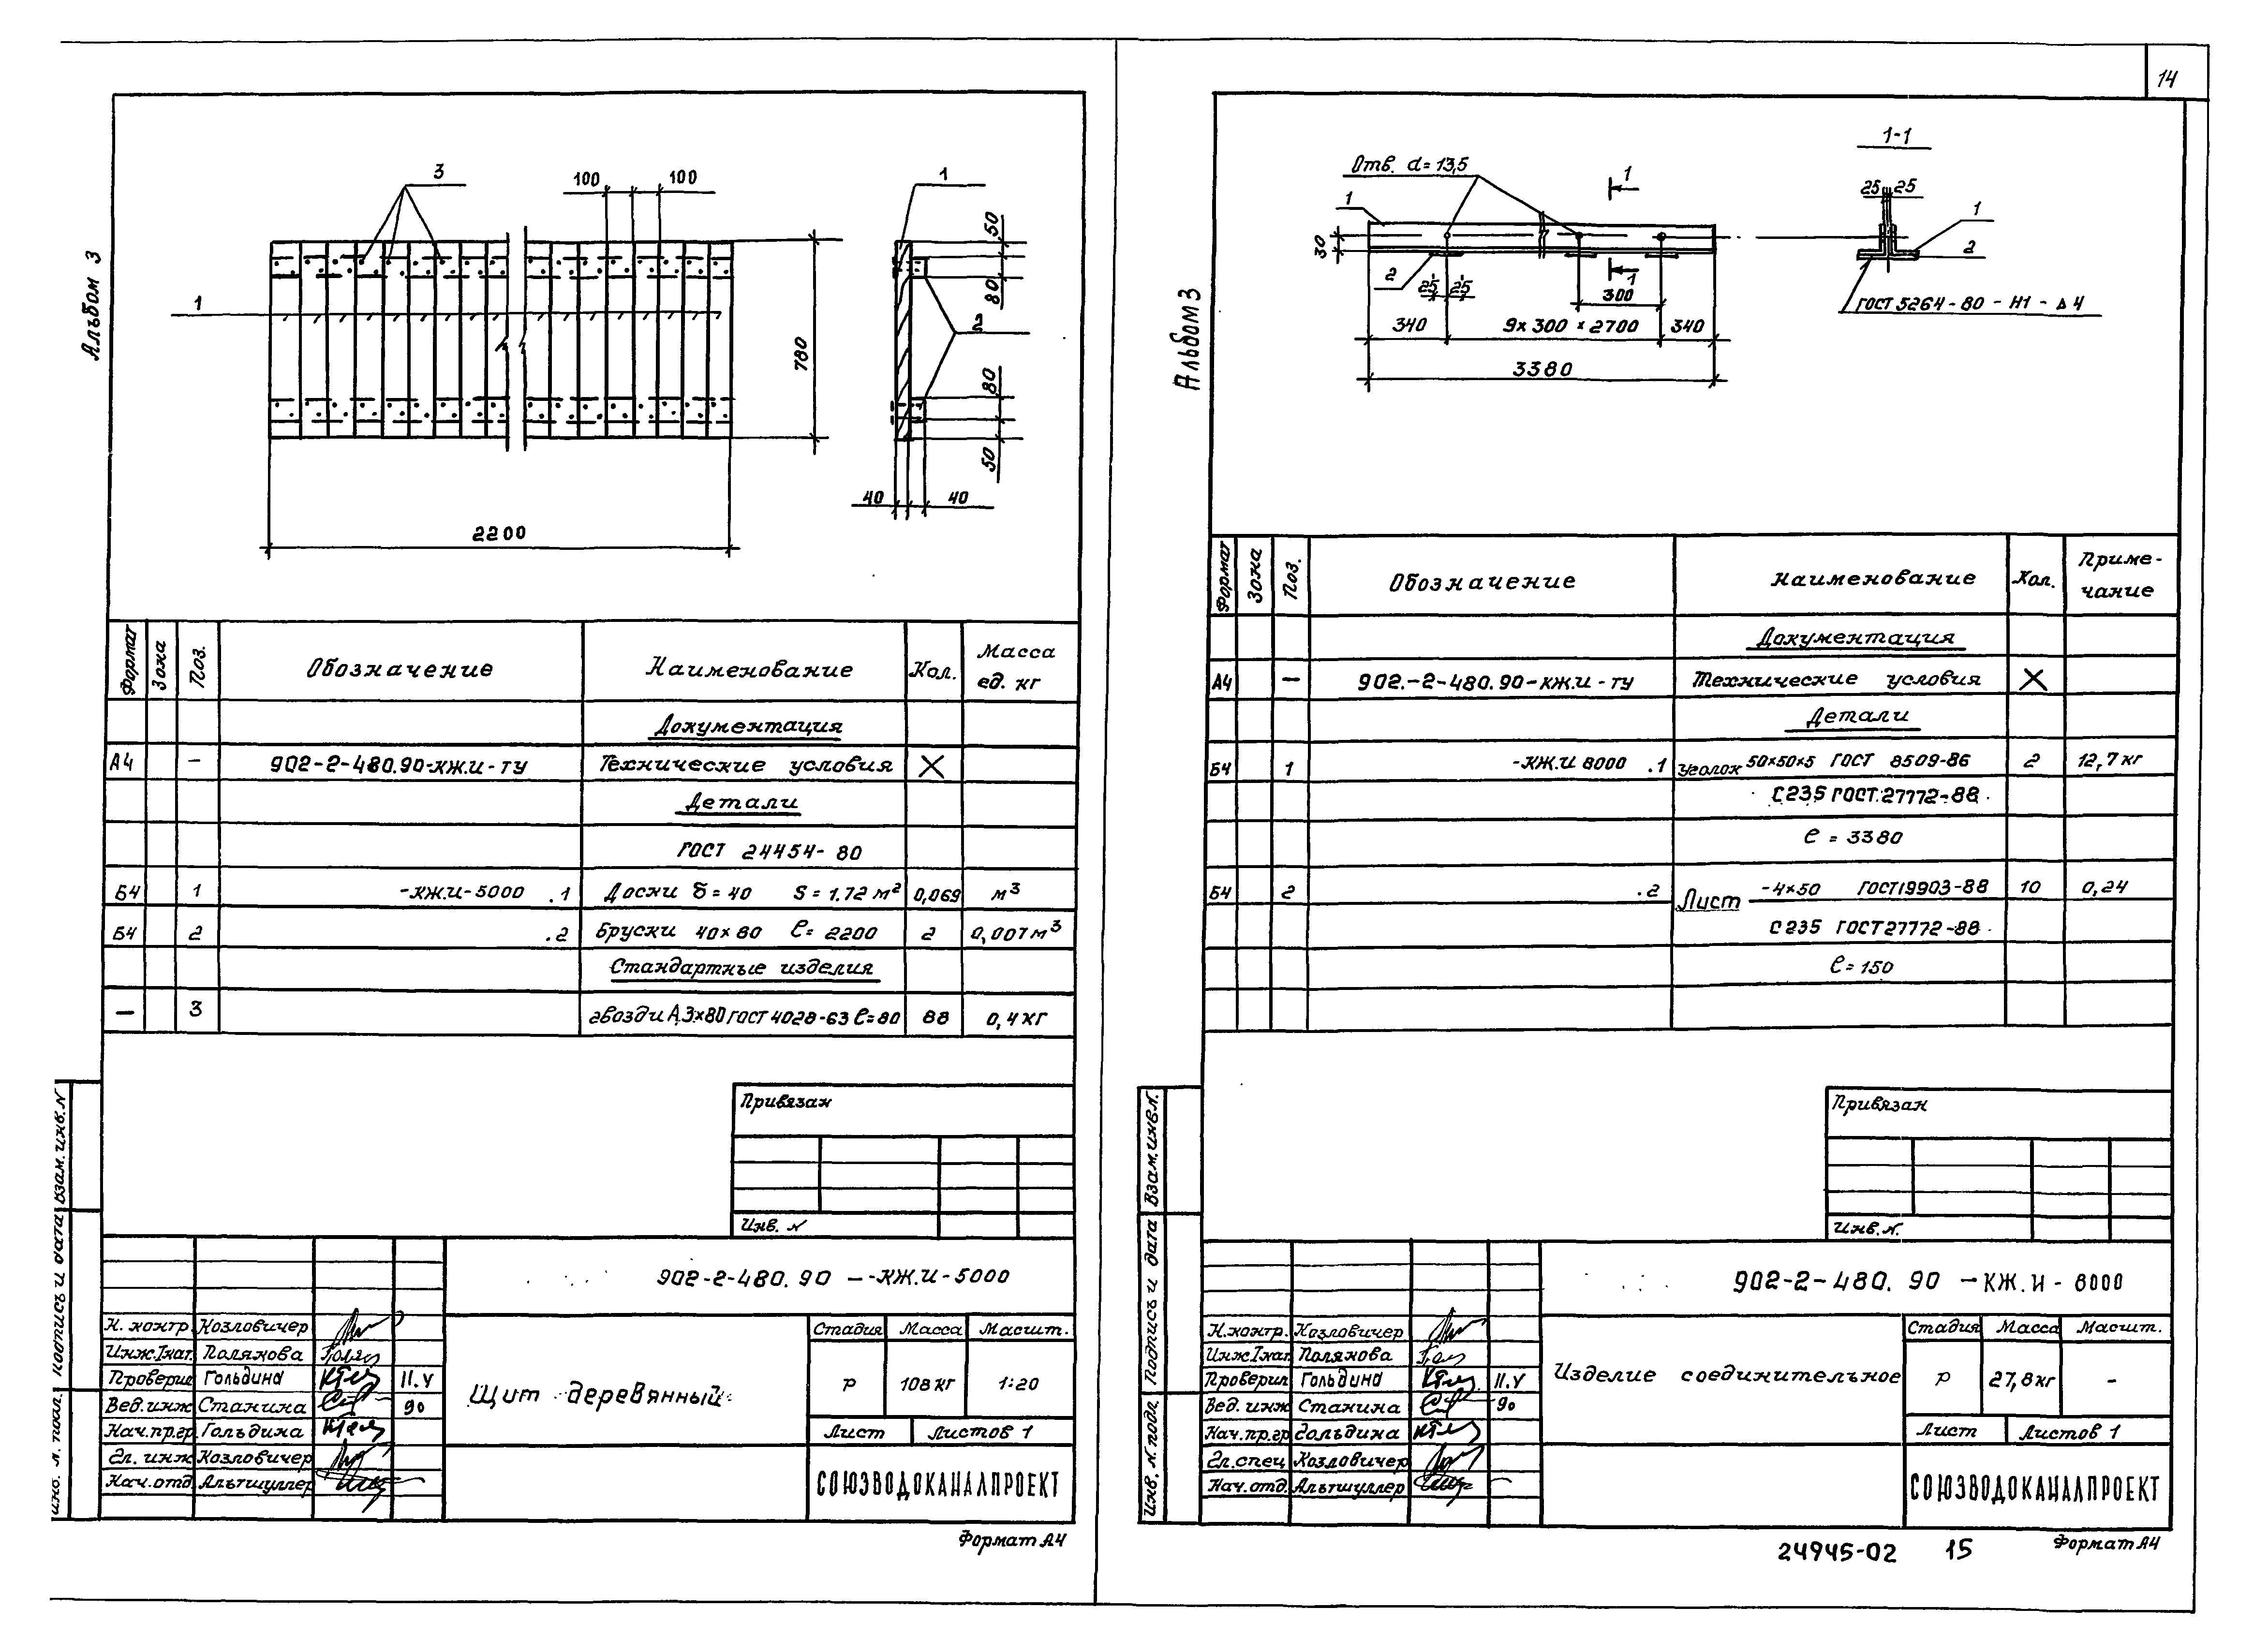 14
Альбом 3
3
100 100
1
1
780
2200
50
80
2
80
50
40 40
Формат Зона Поз. Обозначение Наименование Кол. Масса ед. кг
Документация
А4 — 902-2-480.90-КЖ.И-ТУ Технические условия X
Детали
ГОСТ 24454-80
Б4 1 -КЖ.И-5000 .1 Доски δ=40 S=1.72 м² 0,069 м³
Б4 2 .2 Бруски 40×80 ℓ=2200 2 0,007м³
Стандартные изделия
— 3 гвозди А,3×80 ГОСТ 4028-63 ℓ=80 88 0,4кг
Привязан
Инв. N
Взам. инв. N
Подпись и дата
Инв. N. подл.
902-2-480.90 — -КЖ.И-5000
Н. контр. Козловичер
Инж.Iкат. Полякова
Проверил Гольдина 11.V
Вед.инж Станина 90
Нач.пр.гр. Гольдина
Гл. инж Козловичер
Нач.отд Альтшуллер
Щит деревянный
Стадия Масса Масшт.
р 108кг 1:20
Лист Листов 1
СОЮЗВОДОКАНАЛПРОЕКТ
Формат А4
Альбом 3
Отв. d=13,5
1
1
1
30
2
25 25
300
340 9×300×2700 340
3380
1-1
25 25
1
2
ГОСТ 5264-80-Н1-⊿4
Формат Зона Поз. Обозначение Наименование Кол. Примечание
Документация
А4 — 902.-2-480.90-КЖ.И-ТУ Технические условия X
Детали
Б4 1 -КЖ.И 8000 .1 Уголок 50×50×5 ГОСТ 8509-86 2 12,7кг
С235 ГОСТ.27772-88
ℓ=3380
Б4 2 .2 Лист -4×50 ГОСТ19903-88 10 0,24
С235 ГОСТ27772-88
ℓ=150
Привязан
Инв. N.
Взам. инв. N.
Подпись и дата
Инв. N. подл.
902-2-480.90 — КЖ.И-8000
Н.контр. Козловичер
Инж.Iкат Полякова
Проверил Гольдина 11.V
Вед. инж Станина 90
Нач.пр.гр Гольдина
Гл.спец Козловичер
Нач.отд. Альтшуллер
Изделие соединительное
Стадия Масса Масшт.
р 27,8кг -
Лист Листов 1
СОЮЗВОДОКАНАЛПРОЕКТ
24945-02 15
Формат А4